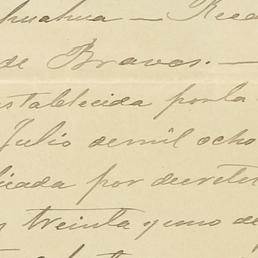 huahua — Reca
de Bravos. —
establecida por la
Julio de mil ocho
licada por decreto
y treinta y uno de